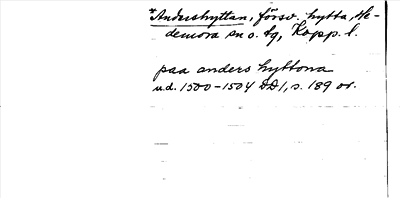 *Andershyttan, försv. hytta, He-
demora sn o. tg, Kopp. l.
paa anders hyttona
u.d. 1500-1504 DD 1, s. 189 or.